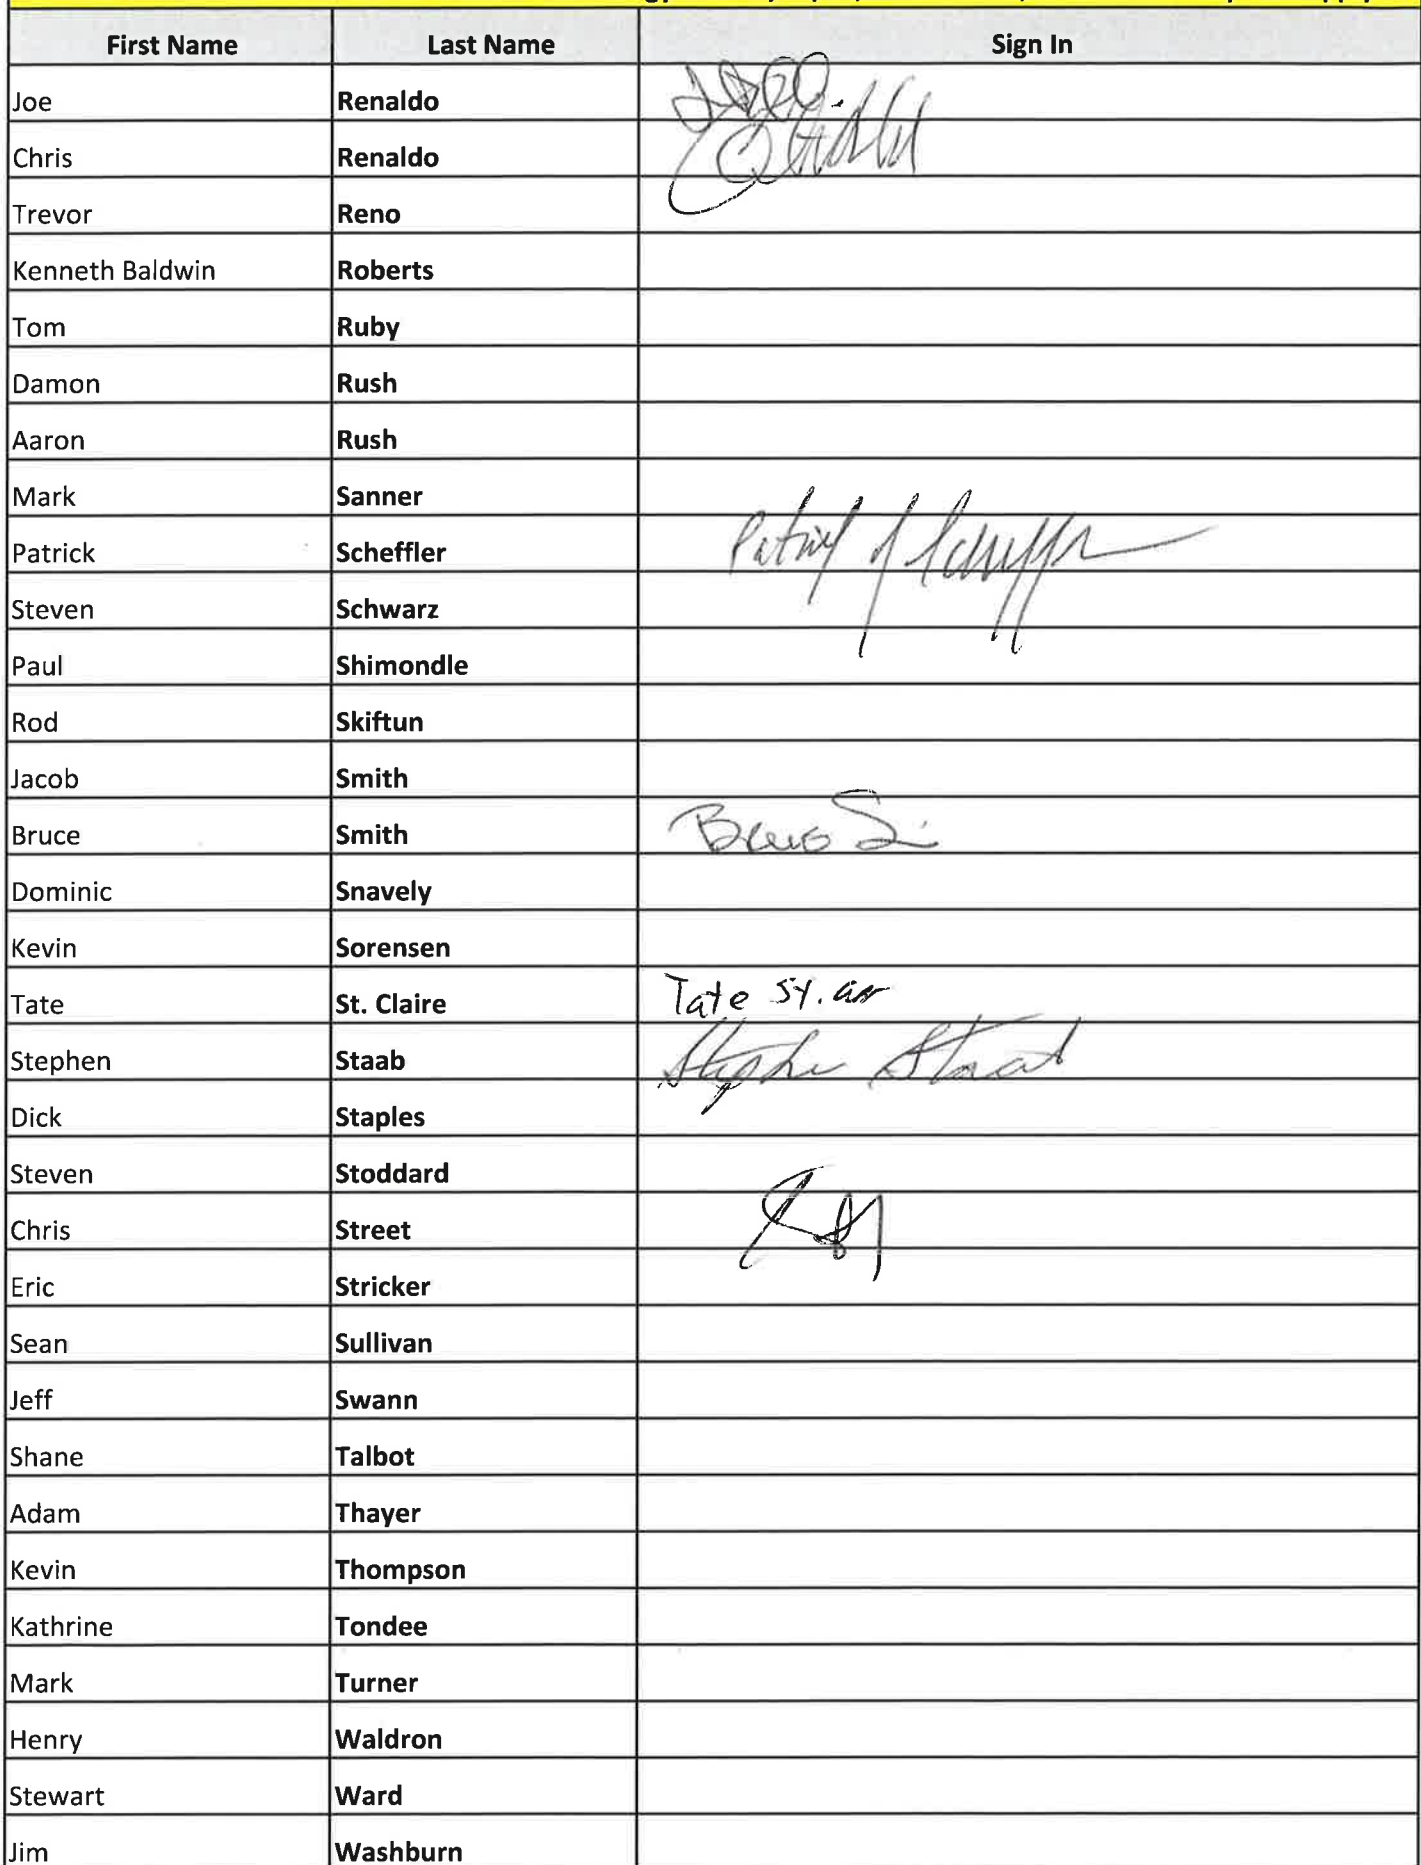 First Name Last Name Sign In
Joe Renaldo
Chris Renaldo
Trevor Reno
Kenneth Baldwin Roberts
Tom Ruby
Damon Rush
Aaron Rush
Mark Sanner
Patrick Scheffler
Steven Schwarz
Paul Shimondle
Rod Skiftun
Jacob Smith
Bruce Smith
Dominic Snavely
Kevin Sorensen
Tate St. Claire Tate
Stephen Staab
Dick Staples
Steven Stoddard
Chris Street
Eric Stricker
Sean Sullivan
Jeff Swann
Shane Talbot
Adam Thayer
Kevin Thompson
Kathrine Tondee
Mark Turner
Henry Waldron
Stewart Ward
Jim Washburn